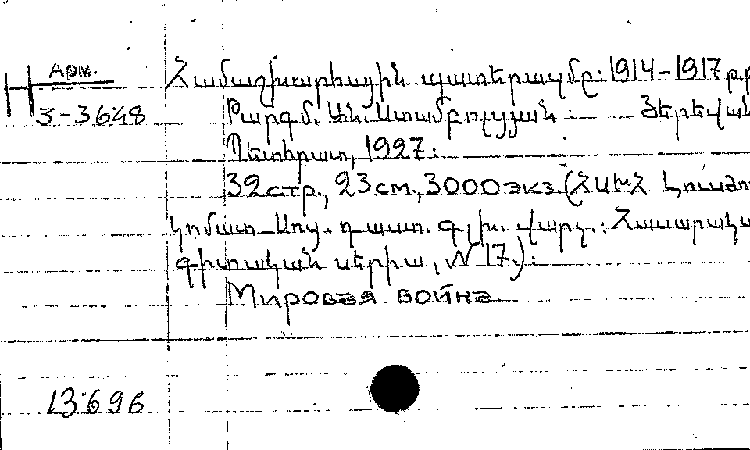 Арм.
Н
3-3648
Համաշխարհային պատերազմը: 1914-1917 թթ
Թարգմ. Ան. Ստամբոլցյան: Յերեվան
Պետհրատ, 1927:
32стр., 23см., 3000экз. (ՀԽՍՀ Լուսժո
կոմատ Սոց. դաստ. գլխ. վարչ.: Հասարակա
գիտական սերիա, N 17.):
Мировая война
13696